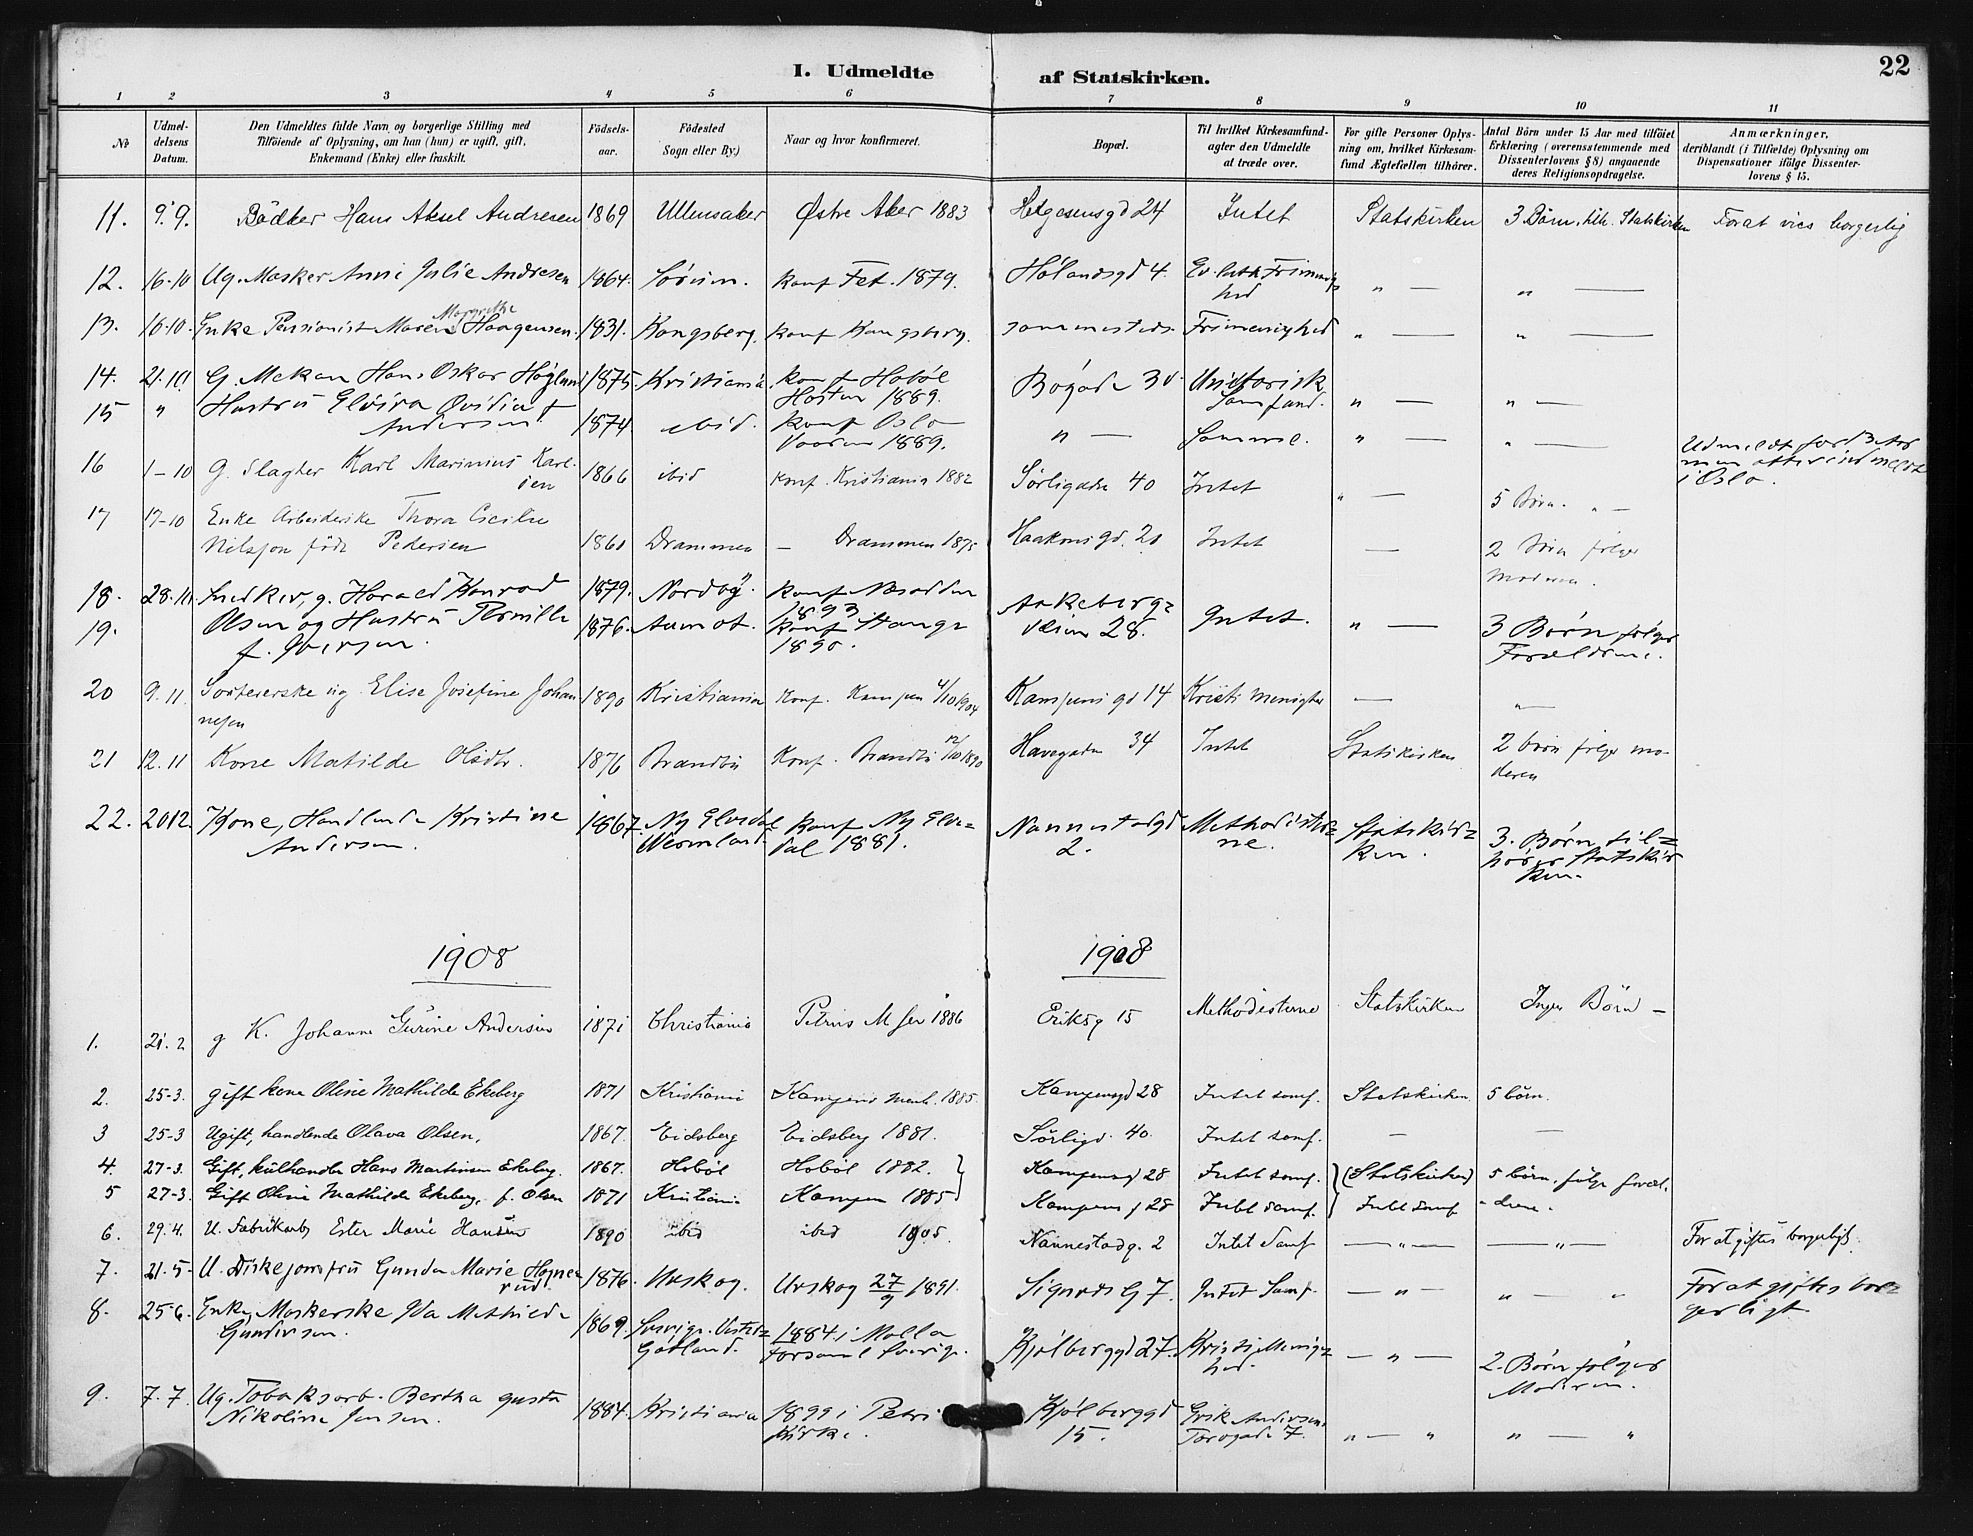 22
I. Udmeldte af Statskirken.
1 2 3 4 5 6 7 8 9 10 11
No
Udmel-
delsens
Datum.
Den Udmeldtes fulde Navn og borgerlige Stilling med
Tilföiende af Oplysning, om han (hun) er ugift, gift,
Enkemand (Enke) eller fraskilt.
Födsels-
aar.
Födested
Sogn eller By.)
Naar og hvor konfirmeret.
Bopæl.
Til hvilket Kirkesamfund-
agter den Udmeldte
at træde over.
For gifte Personer Oplys-
ning om, hvilket Kirkesam-
fund Ægtefællen tilhörer.
Antal Börn under 15 Aar med tilföiet
Erklæring (overensstemmende med
Dissenterlovens § 8) angaaende
deres Religionsopdragelse.
Anmærkninger,
deriblandt (i Tilfælde) Oplysning om
Dispensationer ifölge Dissenter-
lovens § 15.
11. 9.9. Bödker Hans Aksel Andresen 1869 Ullensaker Østre Aker 1883 Helgesensgd 24 Intet Statskirken 3 Börn, tilh. Statskirken For at vies borgerlig
12. 16-10 Ug. Masker Anne Julie Andresen 1864. Sørum. Konf Fet. 1879. Hølandsgd 4. Ev. luth Frimenig
hed " — " —
13. 16-10. Enke Pensionist Maren Margrethe Haagensen. 1831. Kongsberg. Konf Kongsberg. sammesteds. Frimenighed " — " —
14. 21.10 G. Mekan Hans Oskar Høglund 1875. Kristiania. Konf Hobøl
Høsten 1889. Bøgade 30. Unitarisk
Samfund. " — " —
15 " Hustru Elvira Ovidia f
Andersen. 1874. ibid. Konf Oslo
Vaaren 1889. " — Samme. " — " — Udmeldt for 13 Aar
men atter indmeldt
i Oslo.
16 1-10 G. Slagter Karl Marinius Karl-
sen 1866 ibid Konf. Kristiania 1882 Sörligaden 40 Intet " — 5 Börn. " —
17 17-10 Enke Arbeiderske Thora Cecilie
Nilsson födt Pedersen 1860 Drammen — Drammen 1875 Haakonsgd. 20 Intet — 2 Börn følger
moderen.
18. 28.10. Snedker, g. Harald Konrad 1879. Nordby. Konf
1893 Aakebergs
veien 28. Intet. " — 3 Börn følger
Forældrene.
19. Olsen og Hustru Pernille
f. Iversen. 1876. Aamot. Konf Stange
1890.
20 9.11. Sortererske ug. Elise Josefine Johan
nesen 1890 Kristiania Konf. Kampen 4/10 1904 Kampensgd 14 Kristi Menighet — "
21 12.11 Kone Matilde Olsdtr. 1876 Brandbu Konf. Brandbu 12/10 1890 Havegaden 34 Intet Statskirken 2 børn følger mo-
deren
22. 20 12. Kone, Handlende Kristine
Andersen. 1867. Ny Elvedal
Wermland. Konf Ny Elve=
dal 1881. Nannestadgd
2. Methodister=
ne. Statskir=
ken. 3. Børn til=
hører Statskir
ken.
1908 1908
1. 21.2 g K. Johanne Gurine Andersen 1871 Christiania Petrus M Ser 1886 Eriksg 15 Methodisterne Statskirken Ingen Börn —
2. 25-3. gift kone Oline Mathilde Ekeberg 1871 Kristiania Kampens menh. 1885. Kampensgd 28 Intet samf. Statskirken 5 börn.
3 25-3 Ugift, handlende Olava Olsen. 1867. Eidsberg Eidsberg 1881. Sörligd. 40. Intet samf. — —
4. 27-3. Gift, kulhandler Hans Martinsen Ekeberg. 1867. Hobøl Hobøl 1882. Kampensgd 28 Intet samf. (Statskirken) 5 børn, følge foræl-
5 27-3. Gift Oline Mathilde Ekeberg, f. Olsen 1871 Kristiania Kampen 1885 Kampens g 28 Intet samf. Intet samf - drene.
6. 29.4. U. Fabrikarb Ester Marie Hansen 1890 ibid ibid 1905. Nannestadg. 2 Intet Samf — " — — " — For at giftes borgerligt.
7. 21.5- U. Diskejomfru Gunda Marie Hogne
rud 1876. Urskog. Urskog 27/9 1891. Sigurds G 7. Intet Samf. — " — " — " For at giftes bor=
gerligt.
8. 25-6. Enke, Maskerske Ida Mathilde
Gundersen. 1869. Sverige. Vester=
Götland. 1884 i Molla
Forsaml Sverige. Kjølberggd 27. Kristi Menig=
hed. — " — 2. Børn følger
Moderen.
9. 7.7. Ug. Tobaksarb. Bertha Gusta
Nikoline Jensen. 1884. Kristiania 1899 i Petri
Kirke. Kjølberggd
15. Erik Andersens
Torvgade 7. " — " " — "